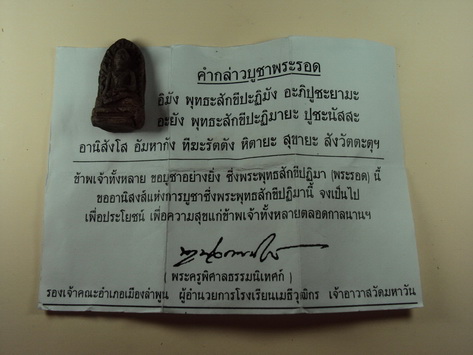 คำกล่าวบูชาพระรอด
อิมัง พุทธะสักขีปะฏิมัง อะภิปูชะยามะ
อะยัง พุทธะสักขีปะฏิมายะ ปูชะนัสสะ
อานิสังโส อัมหากัง ทีฆะรัตตัง หิตายะ สุขายะ สังวัตตะตุฯ
ข้าพเจ้าทั้งหลาย ขอบูชาอย่างยิ่ง ซึ่งพระพุทธสักขีปฏิมา (พระรอด) นี้
ขออานิสงส์แห่งการบูชาซึ่งพระพุทธสักขีปฏิมานี้ จงเป็นไป
เพื่อประโยชน์ เพื่อความสุขแก่ข้าพเจ้าทั้งหลายตลอดกาลนานฯ
( พระครูพิศาลธรรมนิเทศก์ )
รองเจ้าคณะอำเภอเมืองลำพูน ผู้อำนวยการโรงเรียนเมธีวุฒิกร เจ้าอาวาสวัดมหาวัน